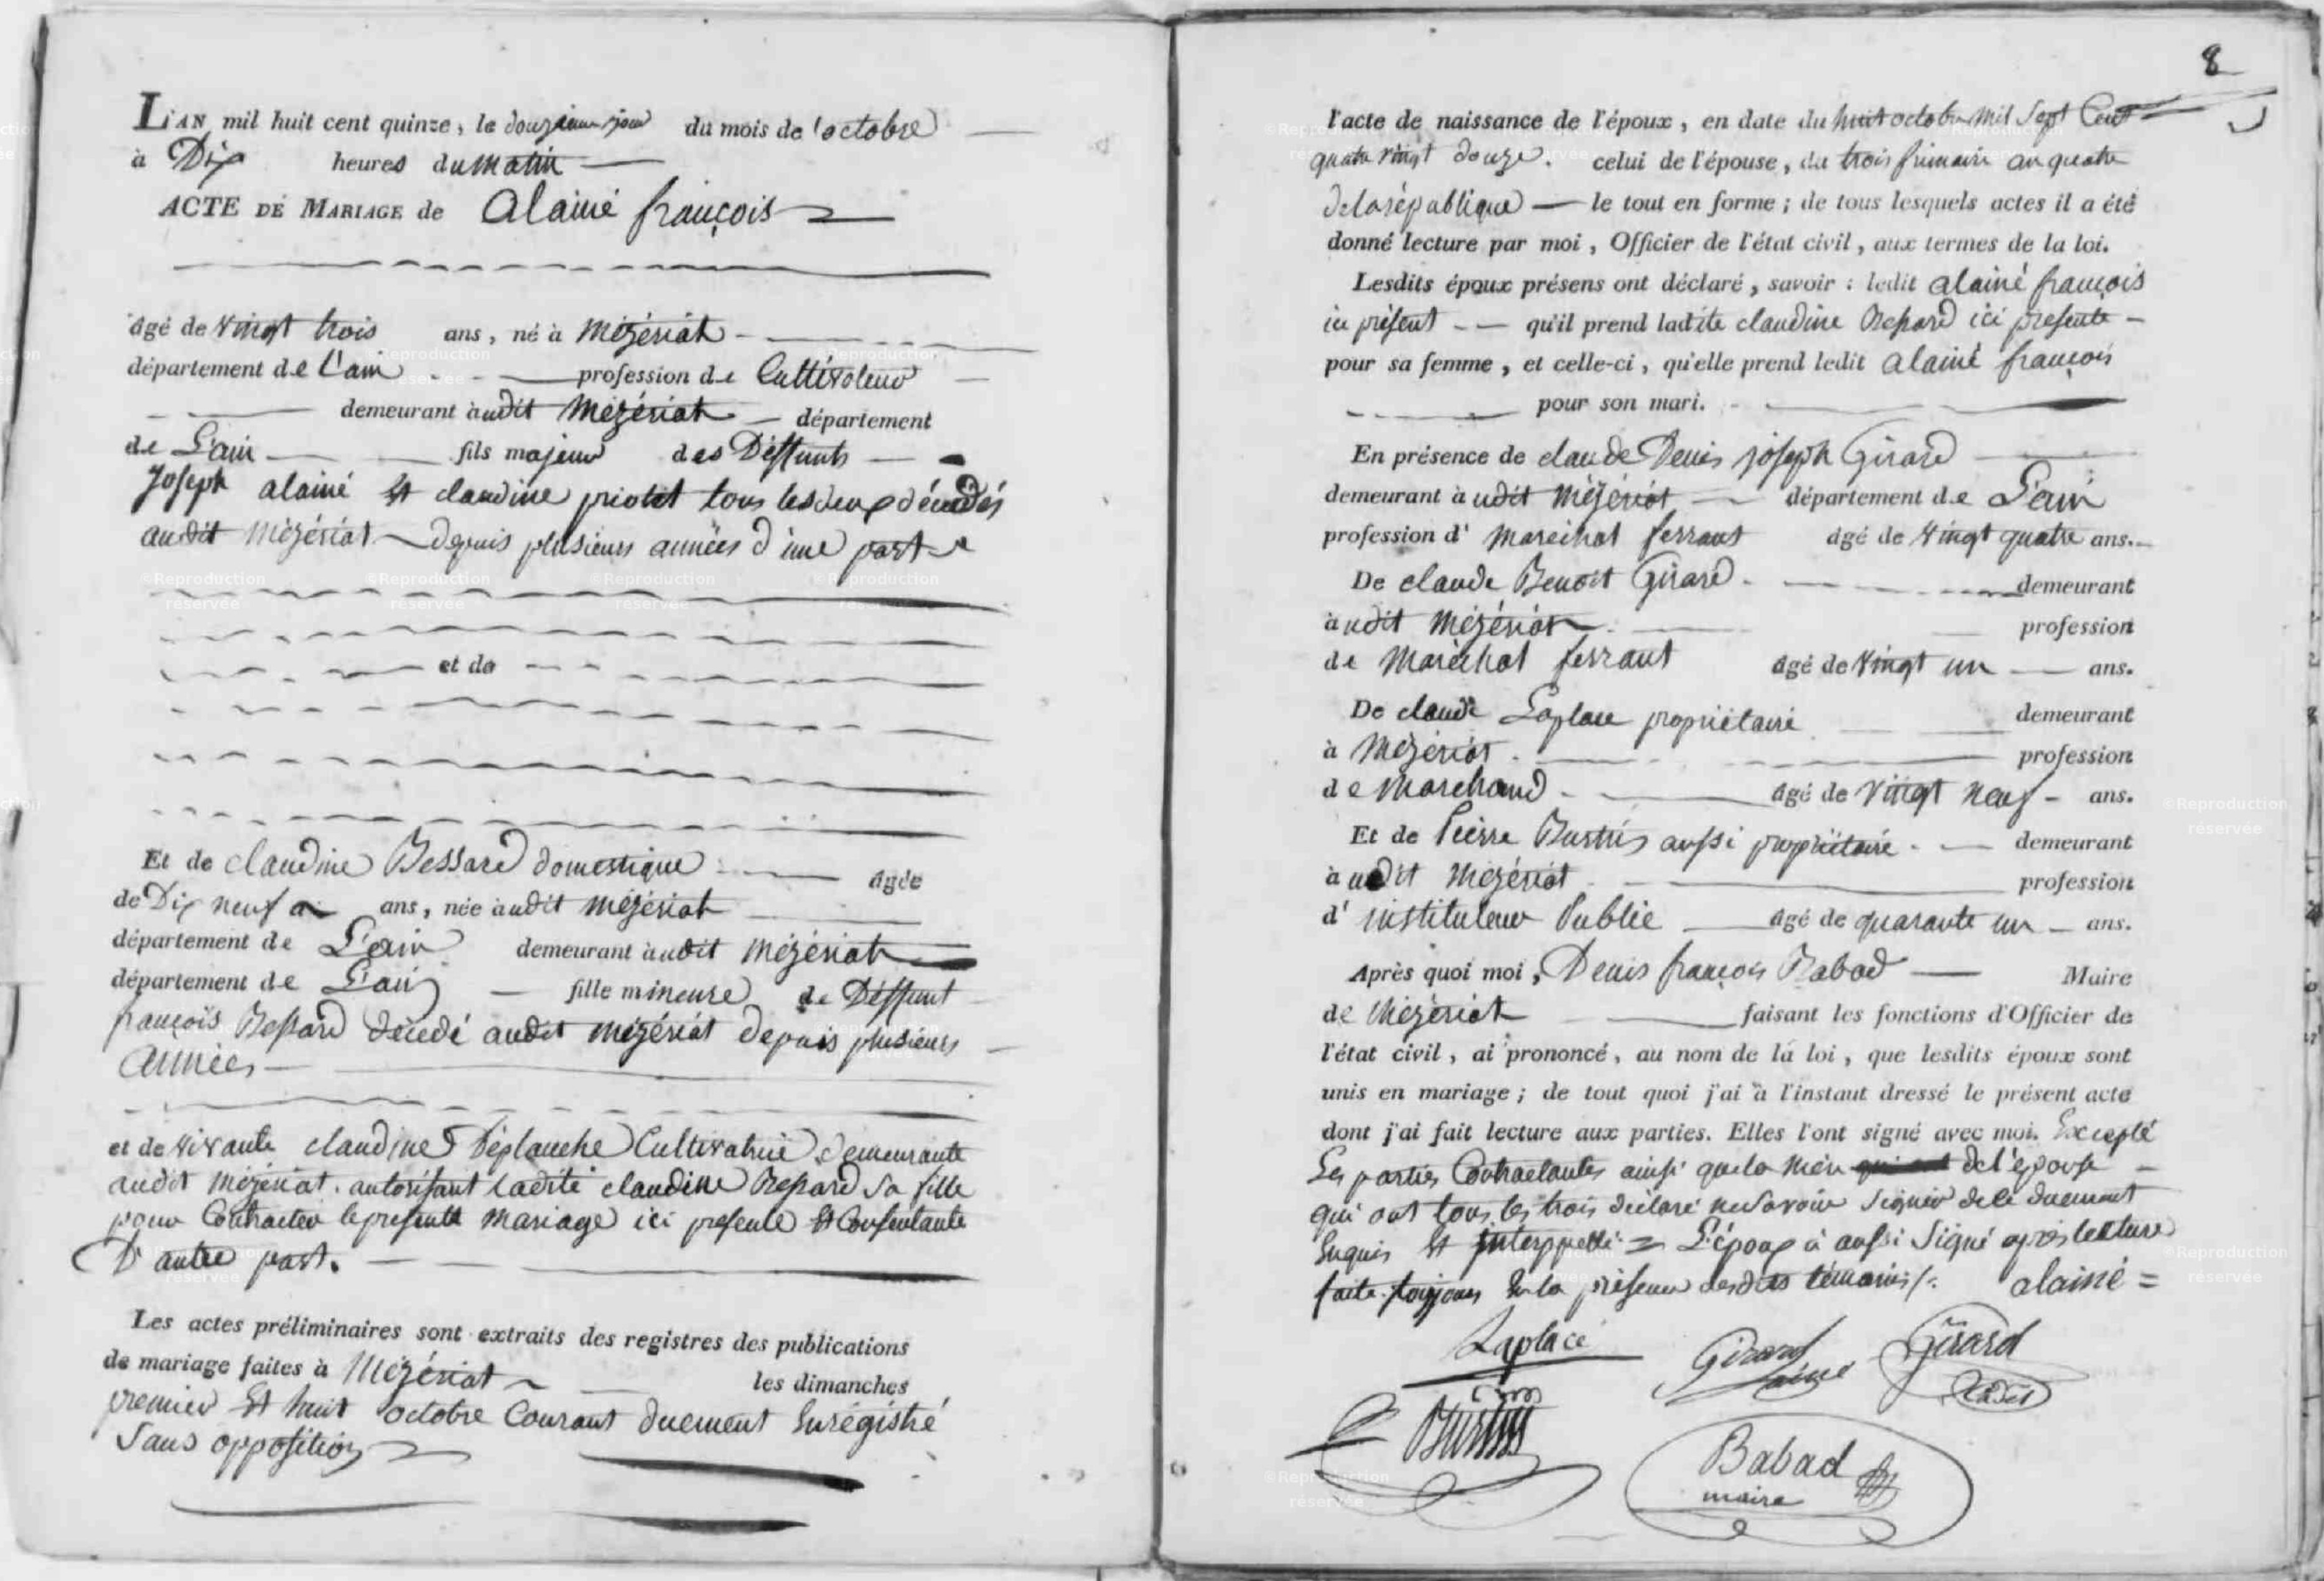 L'AN mil huit cent quinze, le douzieme jour du mois de l'octobre
à Dix heures du matin
ACTE DE MARIAGE de alainé françois
âgé de vingt trois ans, né à mézériat
département de l'ain profession de Cultivateur
demeurant audit mézériat département
de L'ain fils majeur des Deffunts
Joseph alainé Et claudine priolet tous les deux décédés
audit mézériat depuis plusieurs années d'une part
et de
Et de claudine Bessard domestique âgée
de Dix neuf ans, née audit mézériat
département de L'ain demeurant audit mézériat
département de L'ain fille mineure de Deffunt
françois Bessard décédé audit mézériat depuis plusieurs
années
et de vivante claudine Déplanche Cultivatrice demeurante
audit mézériat. autorisant ladite claudine Bessard sa fille
pour Contracter le presente mariage ici presente Et Consentante
D'autre part.
Les actes préliminaires sont extraits des registres des publications
de mariage faites à Mézériat les dimanches
premier Et huit octobre Courant duement Enrégistré
Sans opposition
8
l'acte de naissance de l'époux, en date du huit octobre mil Sept Cent
quatre vingt douze. celui de l'épouse, du trois frimaire an quatre
de la république le tout en forme; de tous lesquels actes il a été
donné lecture par moi, Officier de l'état civil, aux termes de la loi.
Lesdits époux présens ont déclaré, savoir: ledit alainé françois
ici présent qu'il prend ladite claudine Bessard ici presente
pour sa femme, et celle-ci, qu'elle prend ledit alainé françois
pour son mari.
En présence de claude Denis joseph Girard
demeurant à udit mézériat département de L'ain
profession d' marechal ferrant âgé de vingt quatre ans.
De claude Benoit Girard demeurant
à udit mézériat profession
de maréchal ferrant âgé de vingt un ans.
De claude Laplace propriétaire demeurant
à Mézériat profession
de marchand âgé de vingt neuf ans.
Et de Pierre aussi propriétaire demeurant
à udit mézériat profession
d' instituteur Public âgé de quarante un ans.
Après quoi moi, Denis françois Babad Maire
de Mézériat faisant les fonctions d'Officier de
l'état civil, ai prononcé, au nom de la loi, que lesdits époux sont
unis en mariage; de tout quoi j'ai à l'instant dressé le présent acte
dont j'ai fait lecture aux parties. Elles l'ont signé avec moi. Excepté
Les parties Contractantes ainsi que la mère de l'épouse
qui ont tous les trois déclaré ne savoir signer de ce duement
Enquis Et interppellé = L'époux à aussi Signé après lecture
faite toujours En la présence desdits témoins /. alainé =
Laplace Girard ainé Girard Cadet
Babad
maire
©Reproduction réservée